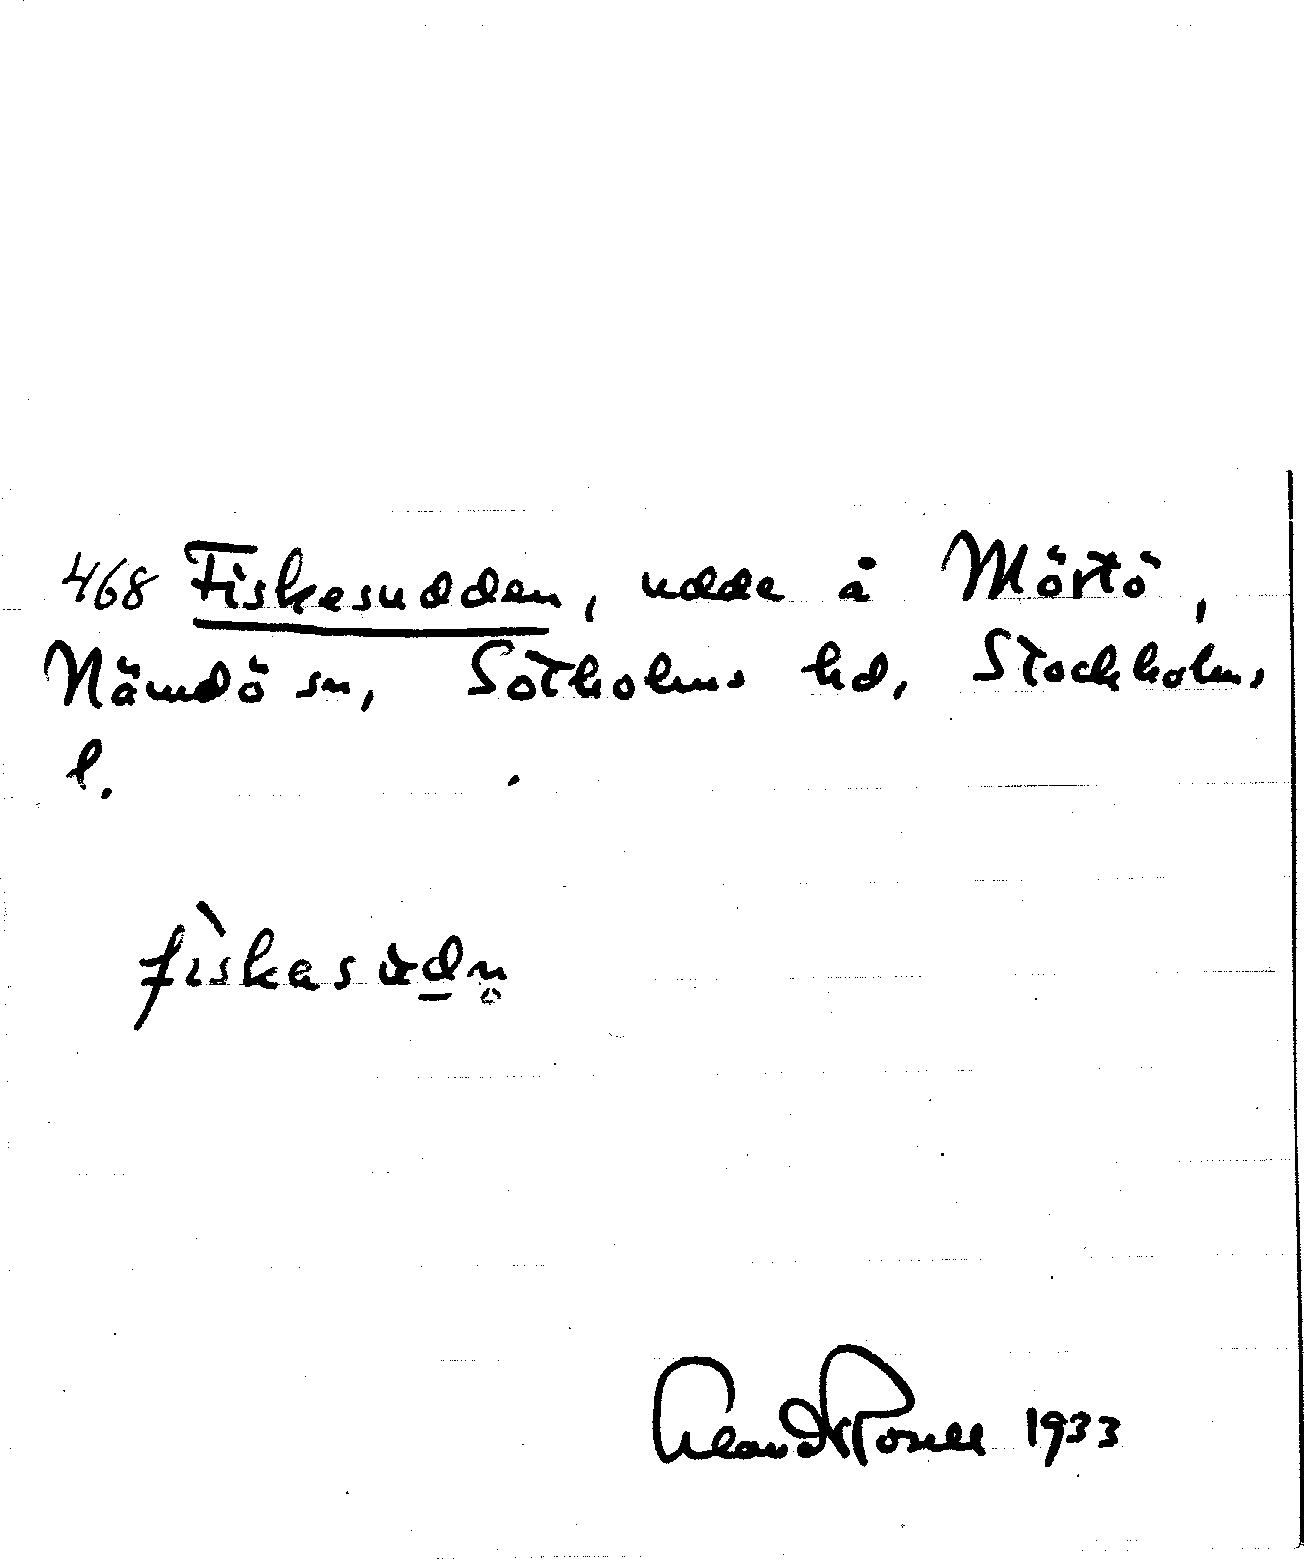 468 Fiskesudden, udde å Mörtö,
Nämdö sn, Sotholms hd, Stockholms
l.
fìskasùdn̥
1933